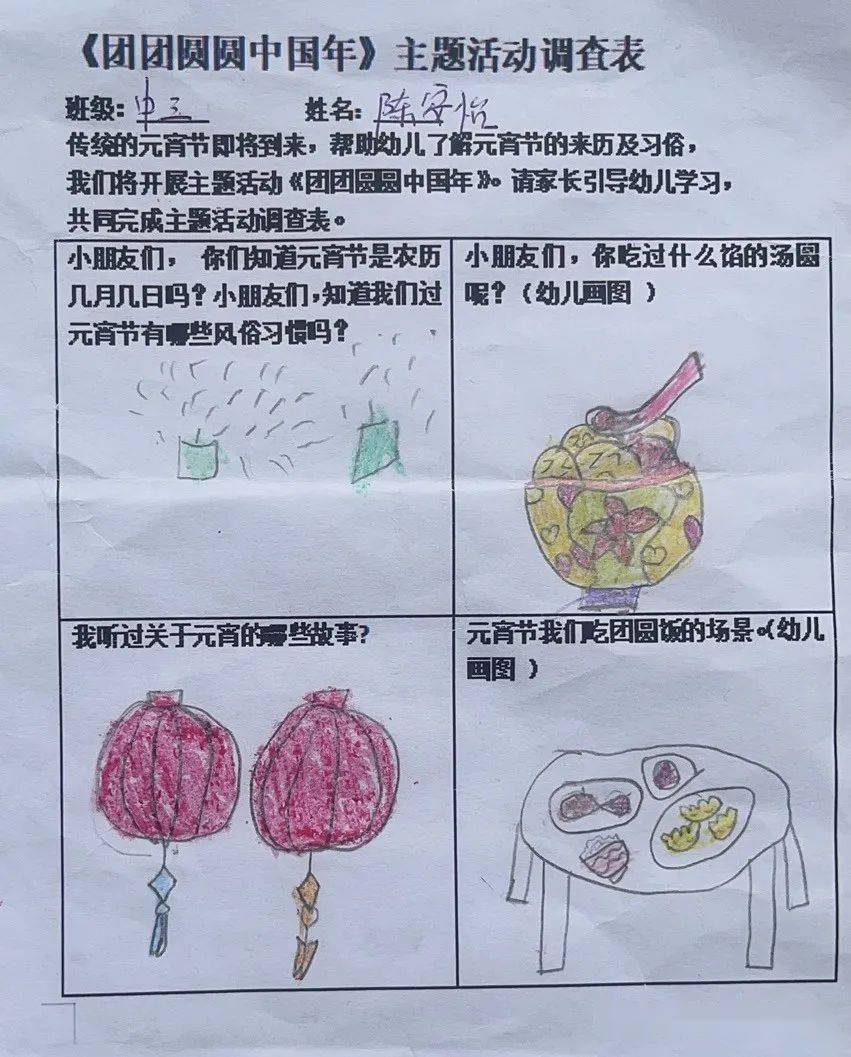 《团团圆圆中国年》主题活动调查表
班级：中三 姓名：陈安怡
传统的元宵节即将到来，帮助幼儿了解元宵节的来历及习俗，
我们将开展主题活动《团团圆圆中国年》。请家长引导幼儿学习，
共同完成主题活动调查表。
小朋友们， 你们知道元宵节是农历
几月几日吗？小朋友们，知道我们过
元宵节有哪些风俗习惯吗？
小朋友们，你吃过什么馅的汤圆
呢？（幼儿画图 ）
我听过关于元宵的哪些故事？
元宵节我们吃团圆饭的场景。（幼儿
画图 ）